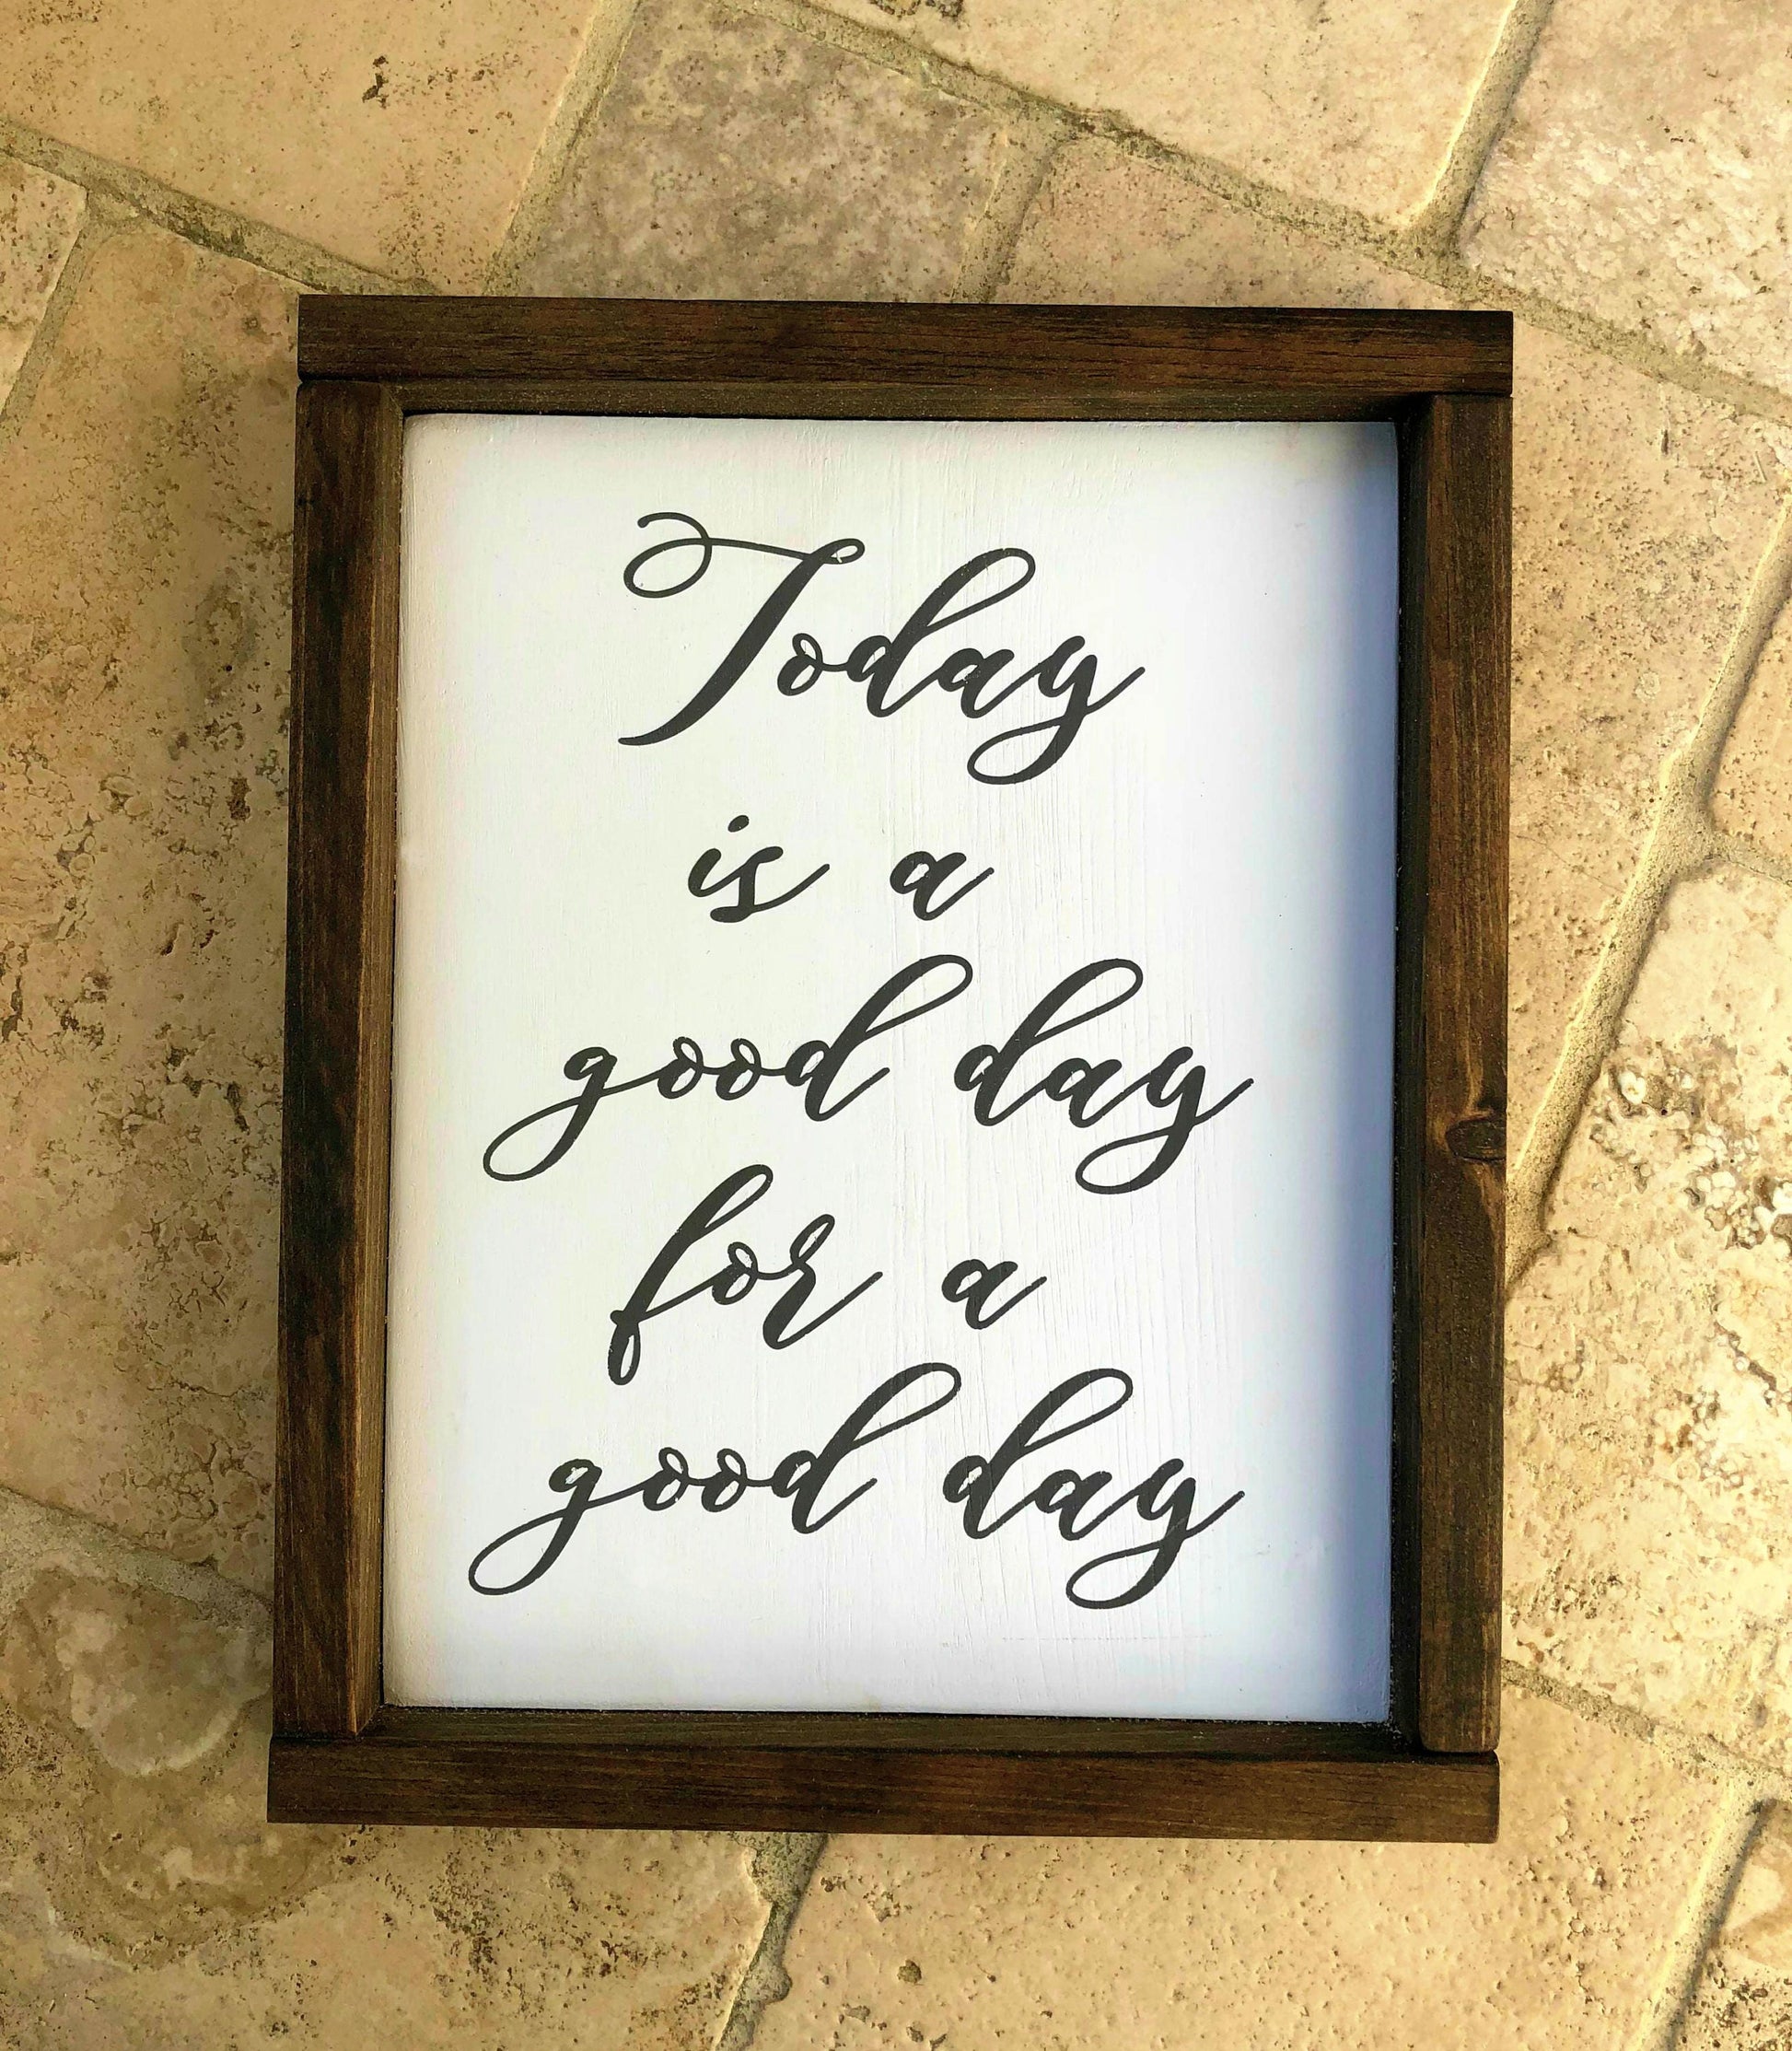 Today
is a
good day
for a
good day